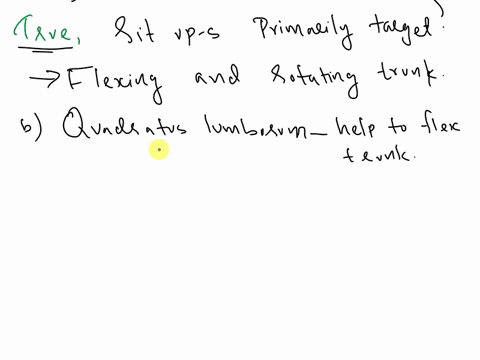 True, Sit up-s Primarily target.
→ Flexing and rotating trunk.
b) Quadratus lumborum – help to flex
trunk.